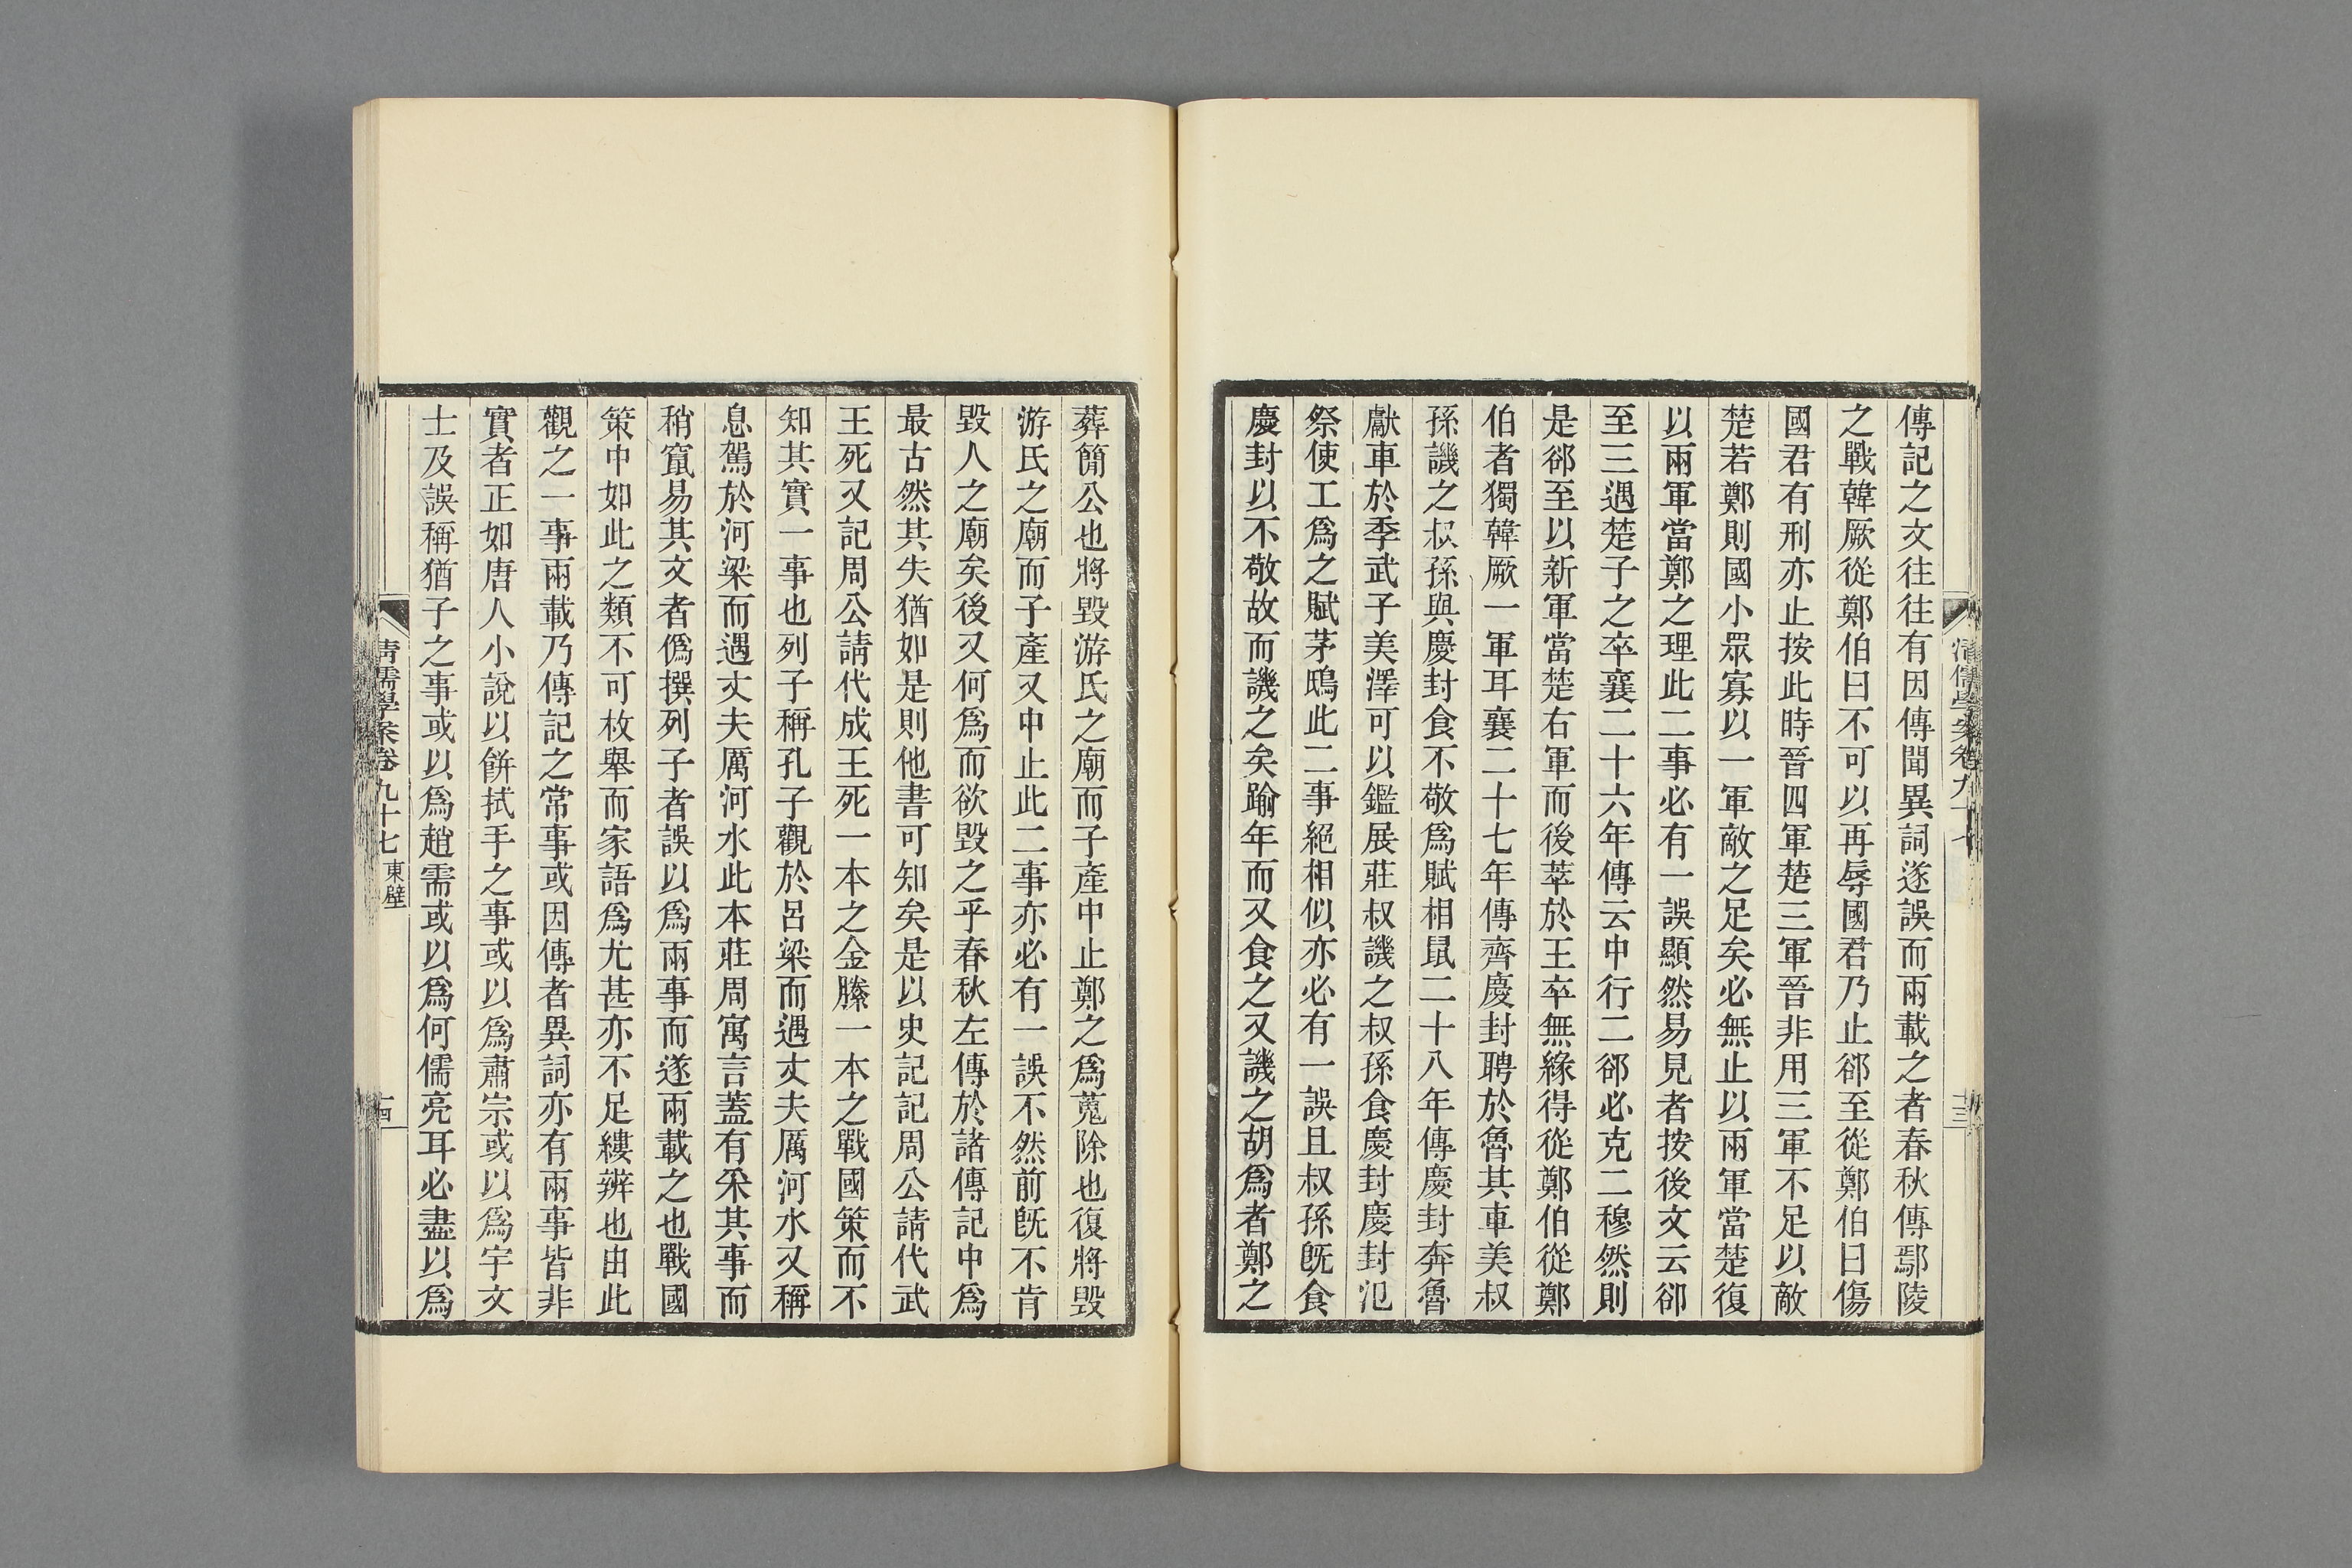 傳記之文往往有因傳聞異詞遂誤而兩載之者春秋傳鄢陵
之戰韓厥從鄭伯曰不可以再辱國君乃止郤至從鄭伯曰傷
國君有刑亦止按此時晉四軍楚三軍晉非用三軍不足以敵
楚若鄭則國小眾寡以一軍敵之足矣必無止以兩軍當楚復
以兩軍當鄭之理此二事必有一誤顯然易見者按後文云郤
至三遇楚子之卒襄二十六年傳云中行二郤必克二穆然則
是郤至以新軍當楚右軍而後萃於王卒無緣得從鄭伯從鄭
伯者獨韓厥一軍耳襄二十七年傳齊慶封聘於魯其車美叔
孫譏之叔孫與慶封食不敬爲賦相鼠二十八年傳慶封奔魯
獻車於季武子美澤可以鑑展莊叔譏之叔孫食慶封慶封氾
祭使工爲之賦茅鴟此二事絕相似亦必有一誤且叔孫旣食
慶封以不敬故而譏之矣踰年而又食之又譏之胡爲者鄭之
清儒學案卷九十七
十三
葬簡公也將毀游氏之廟而子產中止鄭之爲蒐除也復將毀
游氏之廟而子產又中止此二事亦必有一誤不然前旣不肯
毀人之廟矣後又何爲而欲毀之乎春秋左傳於諸傳記中爲
最古然其失猶如是則他書可知矣是以史記記周公請代武
王死又記周公請代成王死一本之金縢一本之戰國策而不
知其實一事也列子稱孔子觀於呂梁而遇丈夫厲河水又稱
息駕於河梁而遇丈夫厲河水此本莊周寓言蓋有采其事而
稍竄易其文者僞撰列子者誤以爲兩事而遂兩載之也戰國
策中如此之類不可枚舉而家語爲尤甚亦不足縷辨也由此
觀之一事兩載乃傳記之常事或因傳者異詞亦有兩事皆非
實者正如唐人小說以餅拭手之事或以爲肅宗或以爲宇文
士及誤稱猶子之事或以爲趙需或以爲何儒亮耳必盡以爲
清儒學案卷九十七 東壁
十四